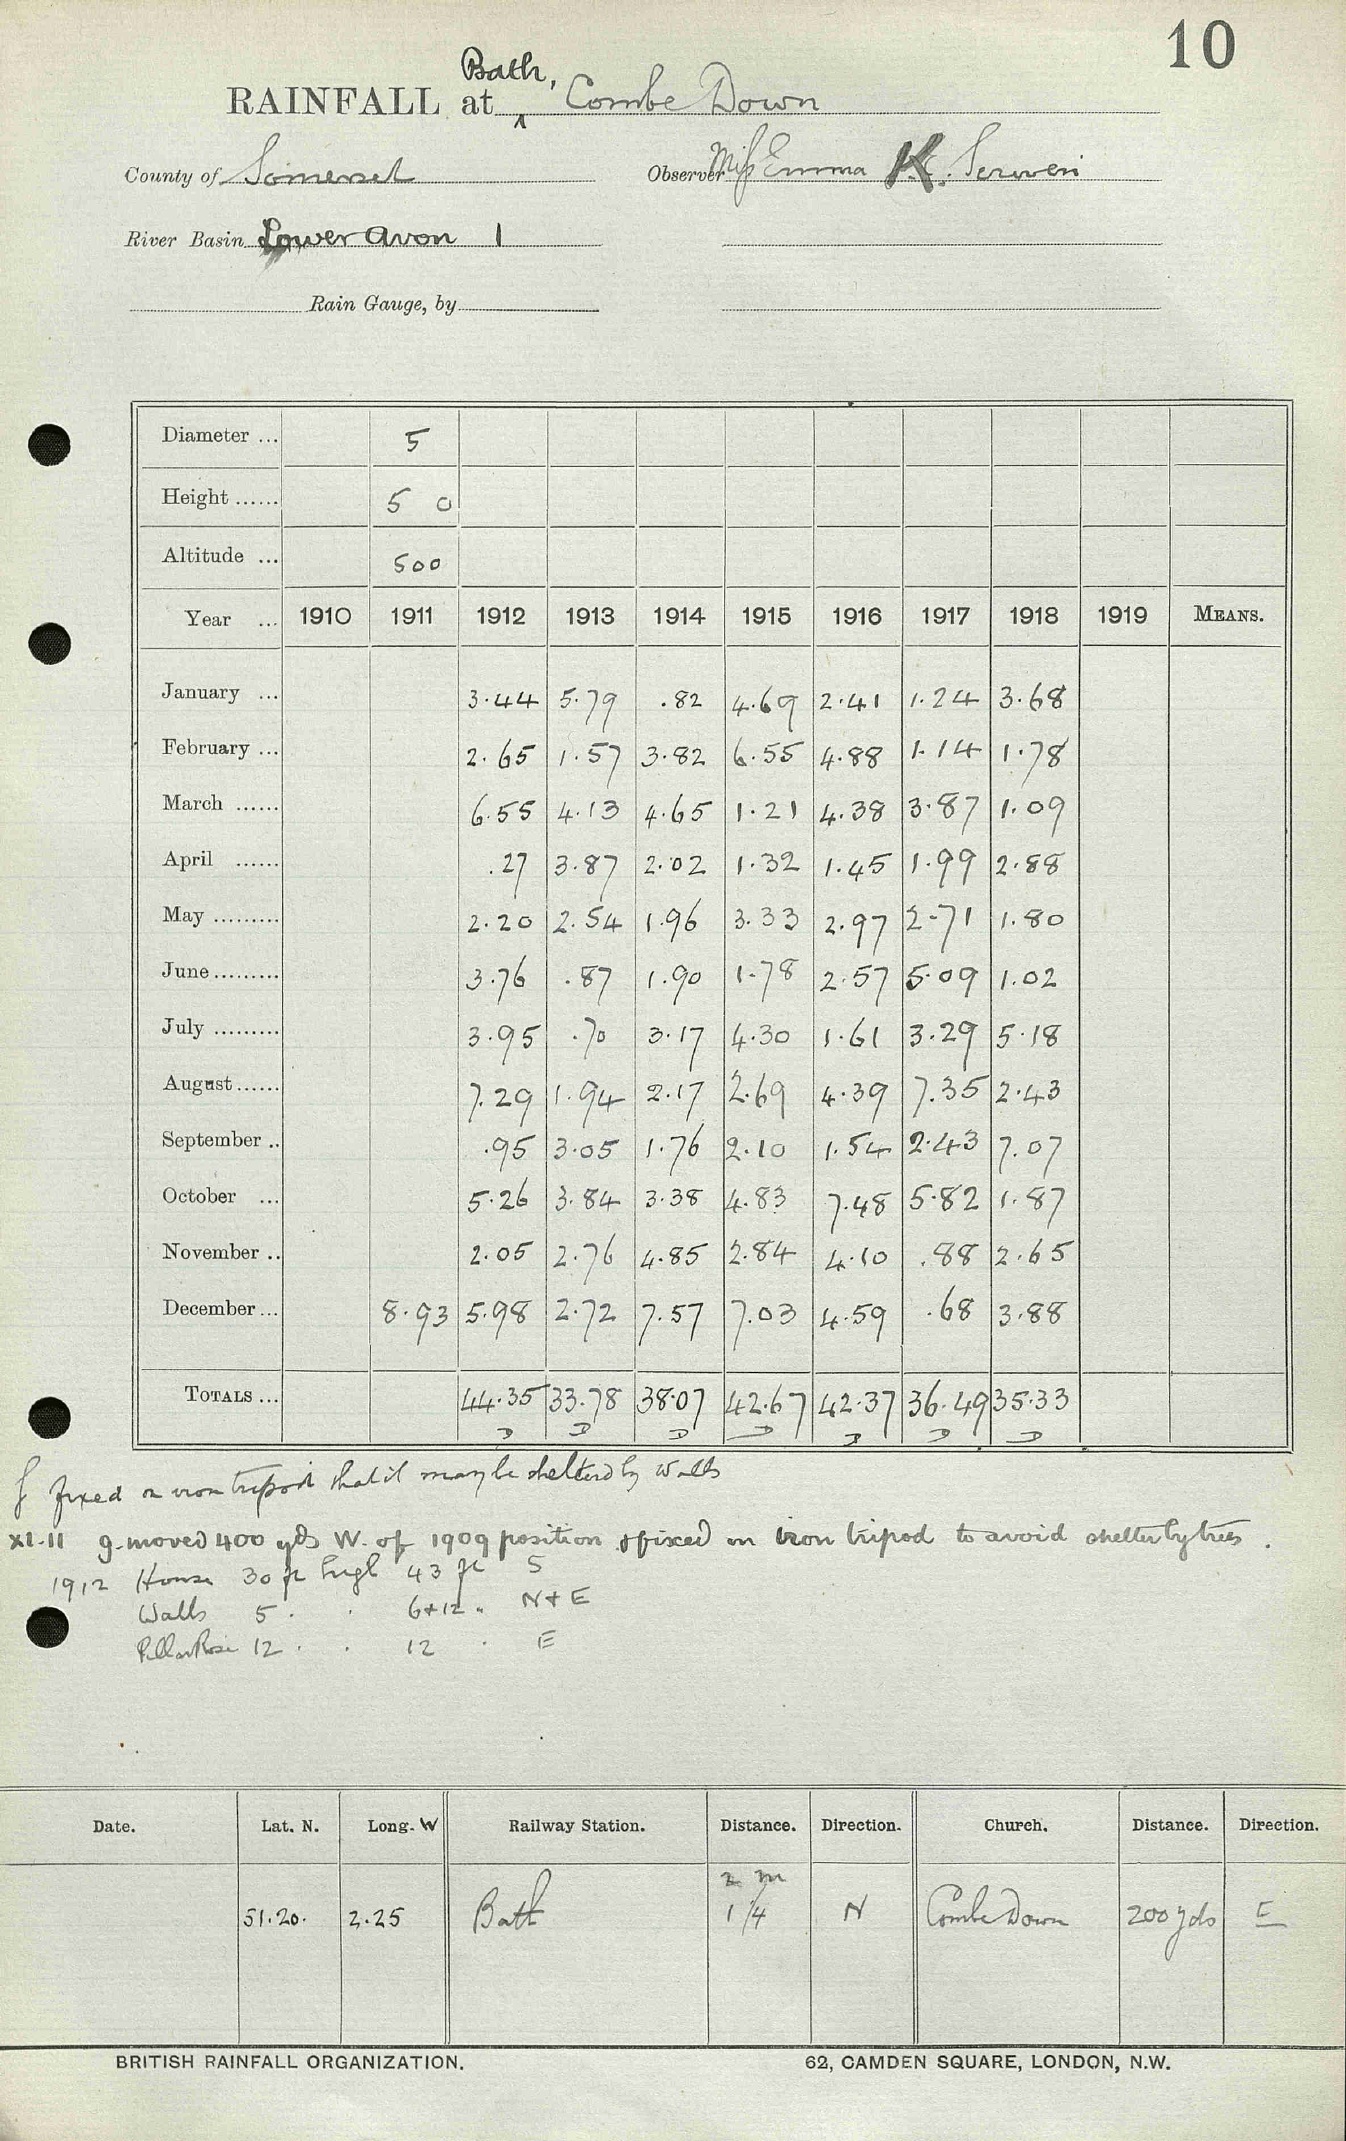 10
Bath,
RAINFALL at Combe Down
County of Somerset Observer Miss Emma K.
River Basin Lower Avon 1
Rain Gauge, by
Diameter ... 5
Height ...... 5 0
Altitude ... 500
Year ... 1910 1911 1912 1913 1914 1915 1916 1917 1918 1919 MEANS.
January ... 3.44 5.79 .82 4.69 2.41 1.24 3.68
February ... 2.65 1.57 3.82 6.55 4.88 1.14 1.78
March ...... 6.55 4.13 4.65 1.21 4.38 3.87 1.09
April ...... .27 3.87 2.02 1.32 1.45 1.99 2.88
May ......... 2.20 2.54 1.96 3.33 2.97 2.71 1.80
June ......... 3.76 .87 1.90 1.78 2.57 5.09 1.02
July ......... 3.95 .70 3.17 4.30 1.61 3.29 5.18
August...... 7.29 1.94 2.17 2.69 4.39 7.35 2.43
September .. .95 3.05 1.76 2.10 1.54 2.43 7.07
October ... 5.26 3.84 3.38 4.83 7.48 5.82 1.87
November .. 2.05 2.76 4.85 2.84 4.10 .88 2.65
December ... 8.93 5.98 2.72 7.57 7.03 4.59 .68 3.88
TOTALS ... 44.35 33.78 38.07 42.67 42.37 36.49 35.33
D D D D D D D
fixed on iron tripod that it may be sheltered by walls
XI.11 g. moved 400 yds W. of 1909 position & fixed on iron tripod to avoid shelter by trees.
1912 House 30 ft high 43 ft S
Walls 5 . . 6+12 " N+E
Pillar Rose 12 . . 12 . E
Date. Lat. N. Long. W Railway Station. Distance. Direction. Church. Distance. Direction.
2 m
51.20. 2.25 Bath 1 1/4 N Combe Down 200 yds E
BRITISH RAINFALL ORGANIZATION. 62, CAMDEN SQUARE, LONDON, N.W.